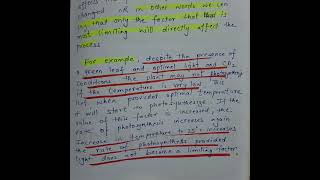 changed OR in other words we can
in, that only the factor that is
most limiting will directly affect the
process
For example, despite the presence of
a green leaf and optimal light and CO2
conditions the plant may not photosynth
if the temperature is very low. This
leaf when provided optimal temperature
it will start to photosynthesize. If the
value of this factor is increased, the
rate of photosynthesis increases again
Increase in temperature to 25°c increases
the rate of photosynthesis provided
light does not become a limiting factor